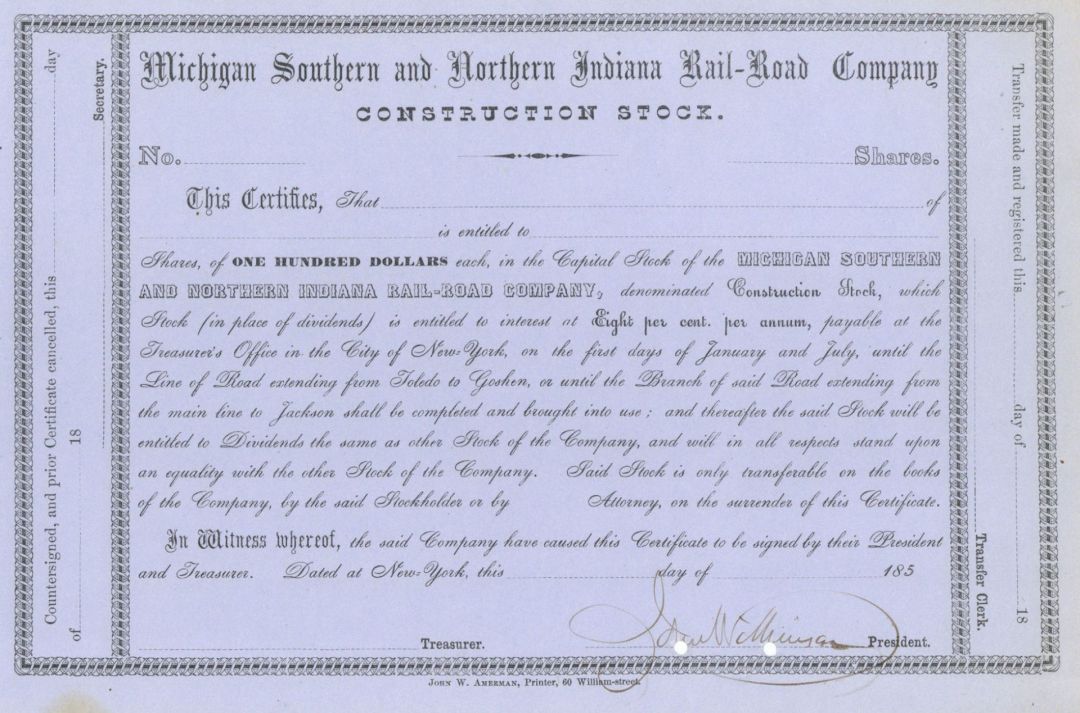 Michigan Southern and Northern Indiana Rail-Road Company
CONSTRUCTION STOCK.
No. Shares.
This Certifies, That of
is entitled to
Shares, of ONE HUNDRED DOLLARS each, in the Capital Stock of the MICHIGAN SOUTHERN
AND NORTHERN INDIANA RAIL-ROAD COMPANY, denominated Construction Stock, which
Stock (in place of dividends) is entitled to interest at Eight per cent. per annum, payable at the
Treasurer's Office in the City of New-York, on the first days of January and July, until the
Line of Road extending from Toledo to Goshen, or until the Branch of said Road extending from
the main line to Jackson shall be completed and brought into use; and thereafter the said Stock will be
entitled to Dividends the same as other Stock of the Company, and will in all respects stand upon
an equality with the other Stock of the Company. Said Stock is only transferable on the books
of the Company, by the said Stockholder or by Attorney, on the surrender of this Certificate.
In Witness whereof, the said Company have caused this Certificate to be signed by their President
and Treasurer. Dated at New-York, this day of 185
Treasurer. John Wilkinson President.
JOHN W. AMERMAN, Printer, 60 William-street.
Countersigned, and prior Certificate cancelled, this day
of 18
Secretary.
Transfer made and registered this day of 18
Transfer Clerk.